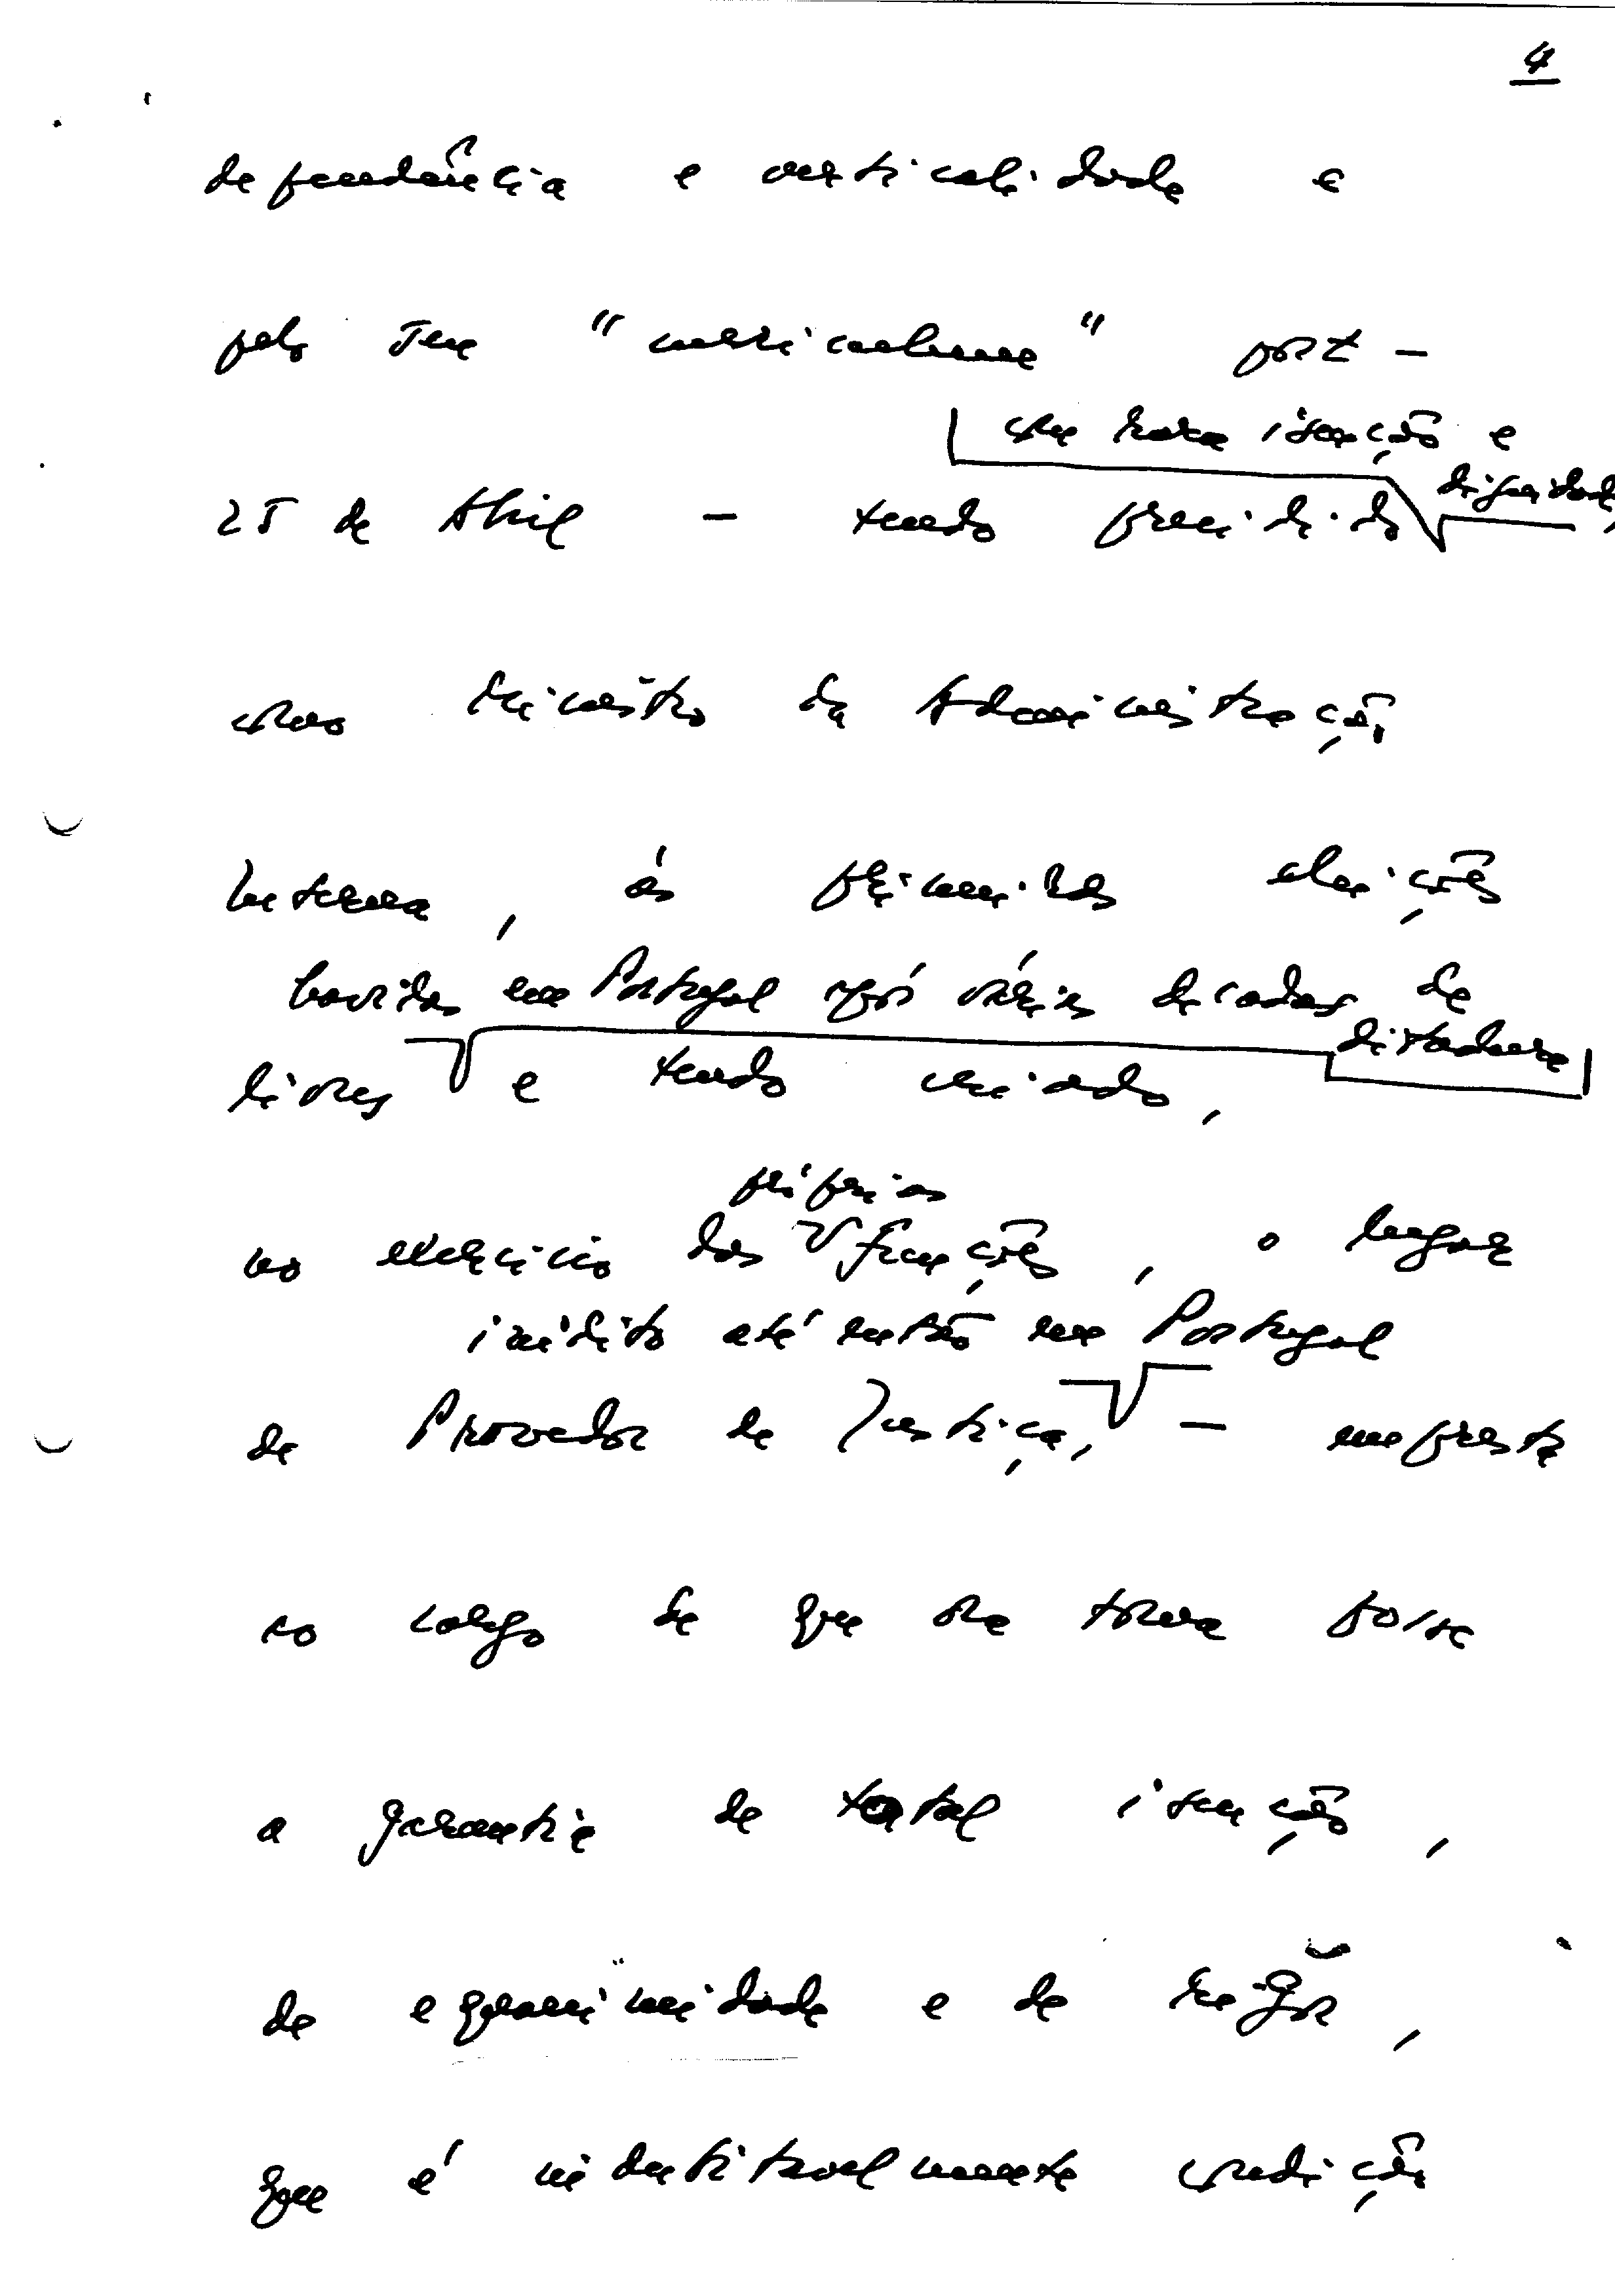 4
dependência e verticalidade e
pelo seu "curriculum" post-
com rara isenção e
dignidade,
25 de Abril - tendo presidido
como Ministro da Administração
Interna, às primeiras eleições
havidas em Portugal após várias décadas de
ditadura
livres e tendo criado,
próprias
no exercício das funções, o lugar
inédito até então em Portugal
de Provedor de Justiça, - empresta
ao cargo de que ora toma posse
a garantia de total isenção,
de equanimidade e de rigor,
que é indubitavelmente condição